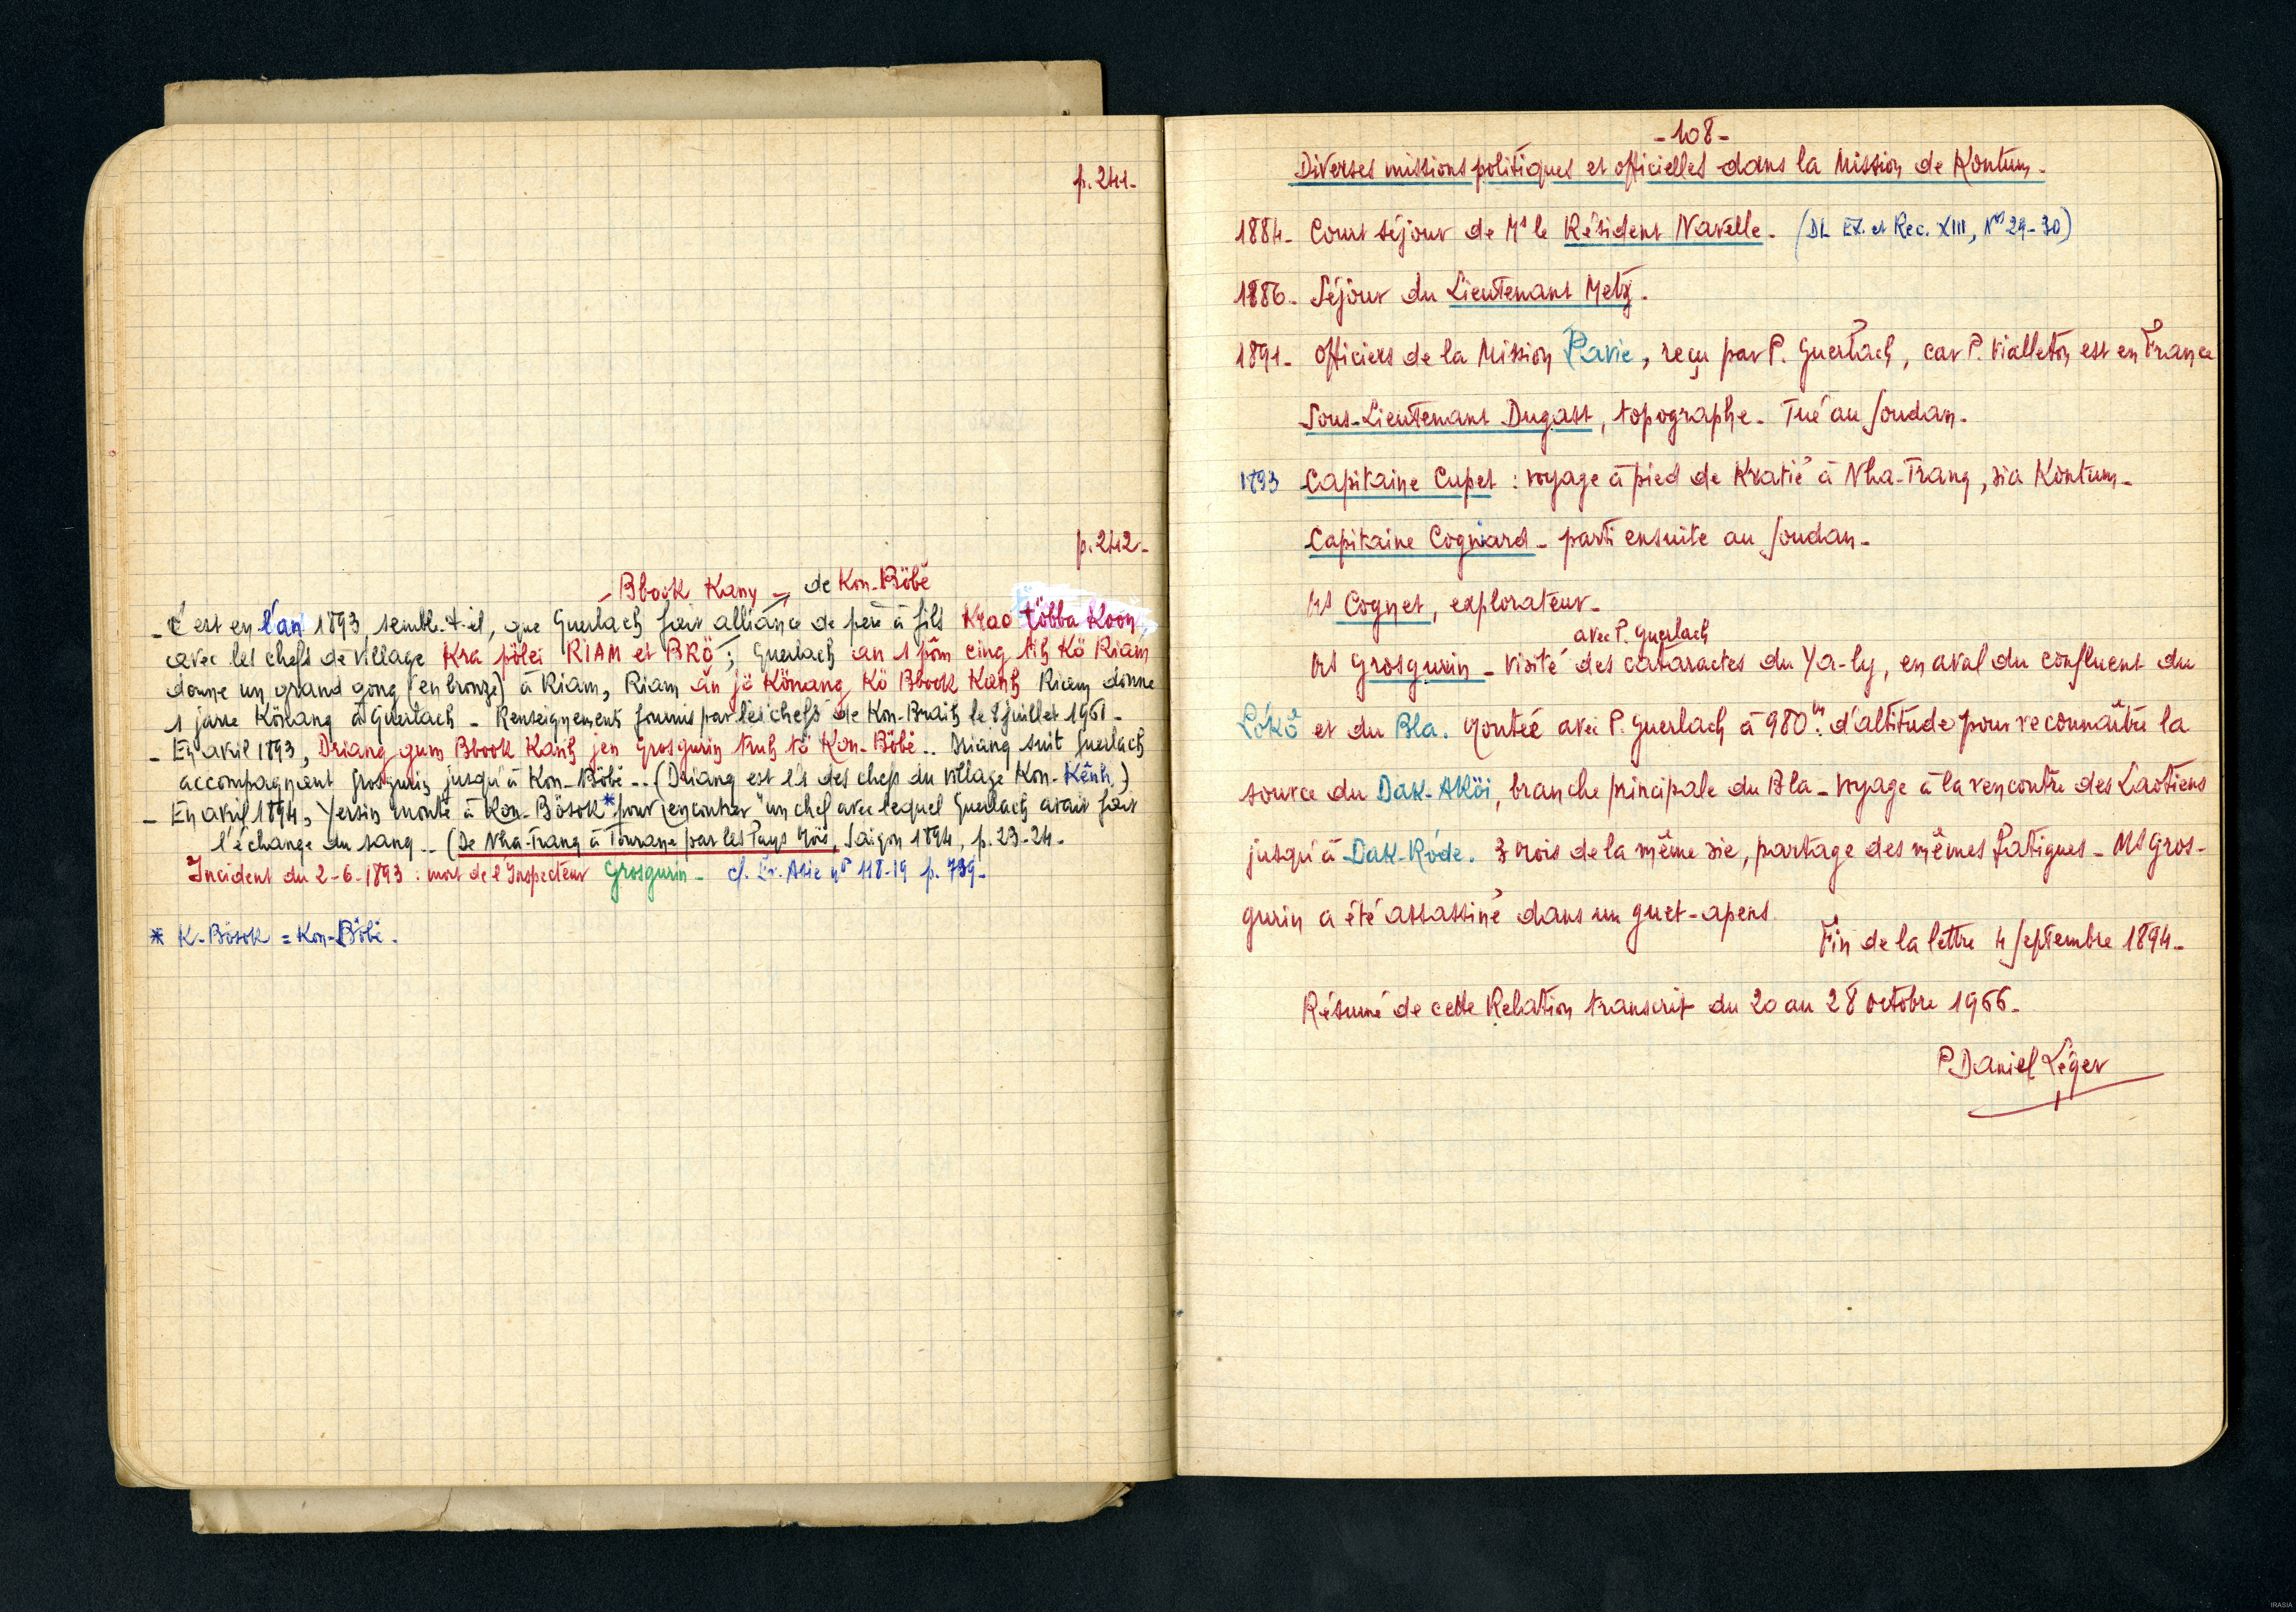 p. 241-
p. 242-
Bbook Kany de Kon-Böbê
- C'est en l'an 1893, semble-t-il, que Guerlach fait alliance de père à fils Krao többa Koon,
avec les chefs de village Kra pölei RIAM et BRÖ ; Guerlach an 1 pôm cing tih Kö Riam
donne un grand gong (en bronze) à Riam, Riam ân jö Könang Kö Bbook Kanh Riam donne
1 jarre Könang à Guerlach - Renseignements fournis par les chefs de Kon-Braih le 8 juillet 1961-
- En avril 1893, Driang gum Bbook Kanh jen Grosgurin truh tö Kon-Böbê.. Driang suit Guerlach
accompagnent Grosgurin jusqu'à Kon-Böbê -- (Driang est des chefs du village Kon-Kênh.)
- En avril 1894, Yersin monte à Kon-Bösok* pour rencontrer "un chef avec lequel Guerlach avait fait
l'échange du sang -- (De Nha-Trang à Tourane par les Pays Moïs, Saigon 1894, p. 23-24.
Incident du 2-6-1893 : mort de l'Inspecteur Grosgurin - cf. Ex. Asie nos 118-19 p. 739-
* K-Bösok = Kon-Böbê.
-108-
Diverses missions politiques et officielles dans la Mission de Kontum.
1884- Court séjour de Mr le Résident Navelle. (DL Ex. et Rec. XIII, Nos 29-30)
1886- Séjour du Lieutenant Metz.
1891- Officiers de la Mission Pavie, reçu par P. Guerlach, car P. Vialleton est en France
Sous-Lieutenant Dugast, topographe. Tué au Soudan.
1893 Capitaine Cupet : voyage à pied de Kratié à Nha-Trang, via Kontum-
Capitaine Cogniard - parti ensuite au Soudan-
Mr Cognet, explorateur-
avec P. Guerlach
Mr Grosgurin - visite des cataractes du Ya-ly, en aval du confluent du
Lökö et du Bla. Montée avec P. Guerlach à 980m. d'altitude pour reconnaître la
source du Dak-Aköi, branche principale du Bla - Voyage à la rencontre des Laotiens
jusqu'à Dak-Röde. 3 mois de la même vie, partage des mêmes fatigues - Mr Gros-
gurin a été assassiné dans un guet-apens
Fin de la lettre 4 septembre 1894-
Résumé de cette Relation transcrit du 20 au 28 octobre 1966-
P. Daniel Léger
IRASIA